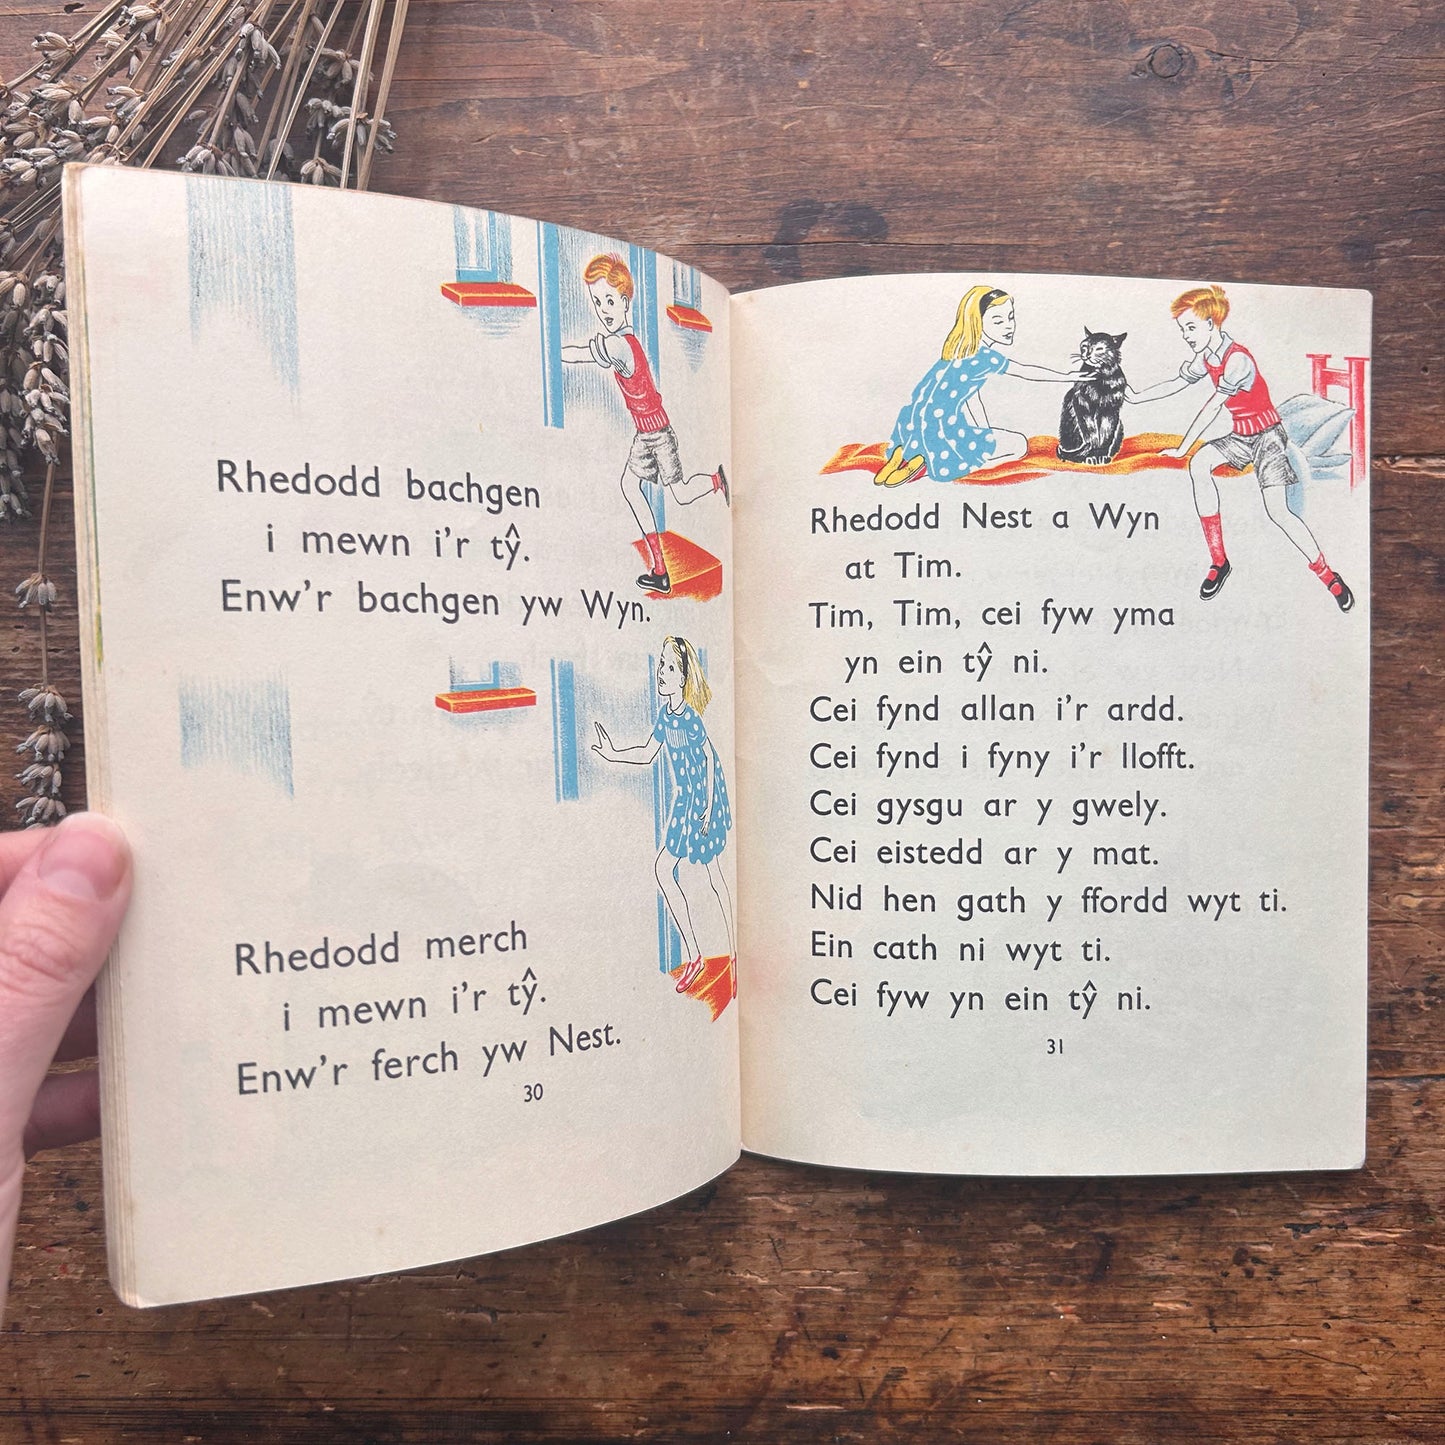 Rhedodd bachgen
i mewn i'r tŷ.
Enw'r bachgen yw Wyn.
Rhedodd merch
i mewn i'r tŷ.
Enw'r ferch yw Nest.
30
Rhedodd Nest a Wyn
at Tim.
Tim, Tim, cei fyw yma
yn ein tŷ ni.
Cei fynd allan i'r ardd.
Cei fynd i fyny i'r llofft.
Cei gysgu ar y gwely.
Cei eistedd ar y mat.
Nid hen gath y ffordd wyt ti.
Ein cath ni wyt ti.
Cei fyw yn ein tŷ ni.
31